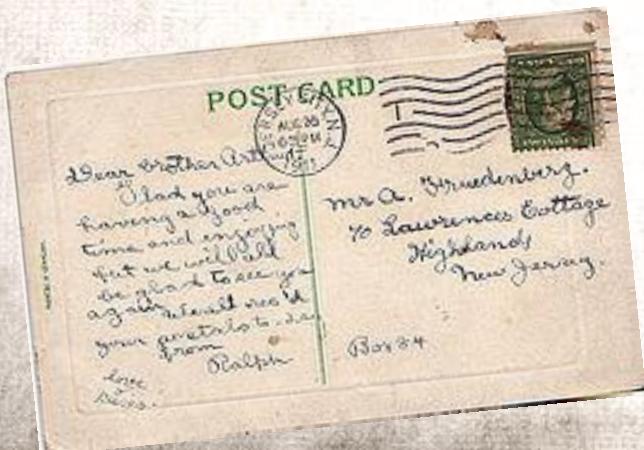 POST CARD
AUG 26
Dear brother Arthur
Glad you are
having a good
time and enjoying
but we will all
be glad to see you
again. We all rec'd
your postals to-day
from
Ralph
Love
Mr A. Fruedenberg.
% Lawrences Cottage
Highlands
New Jersey.
Box 84